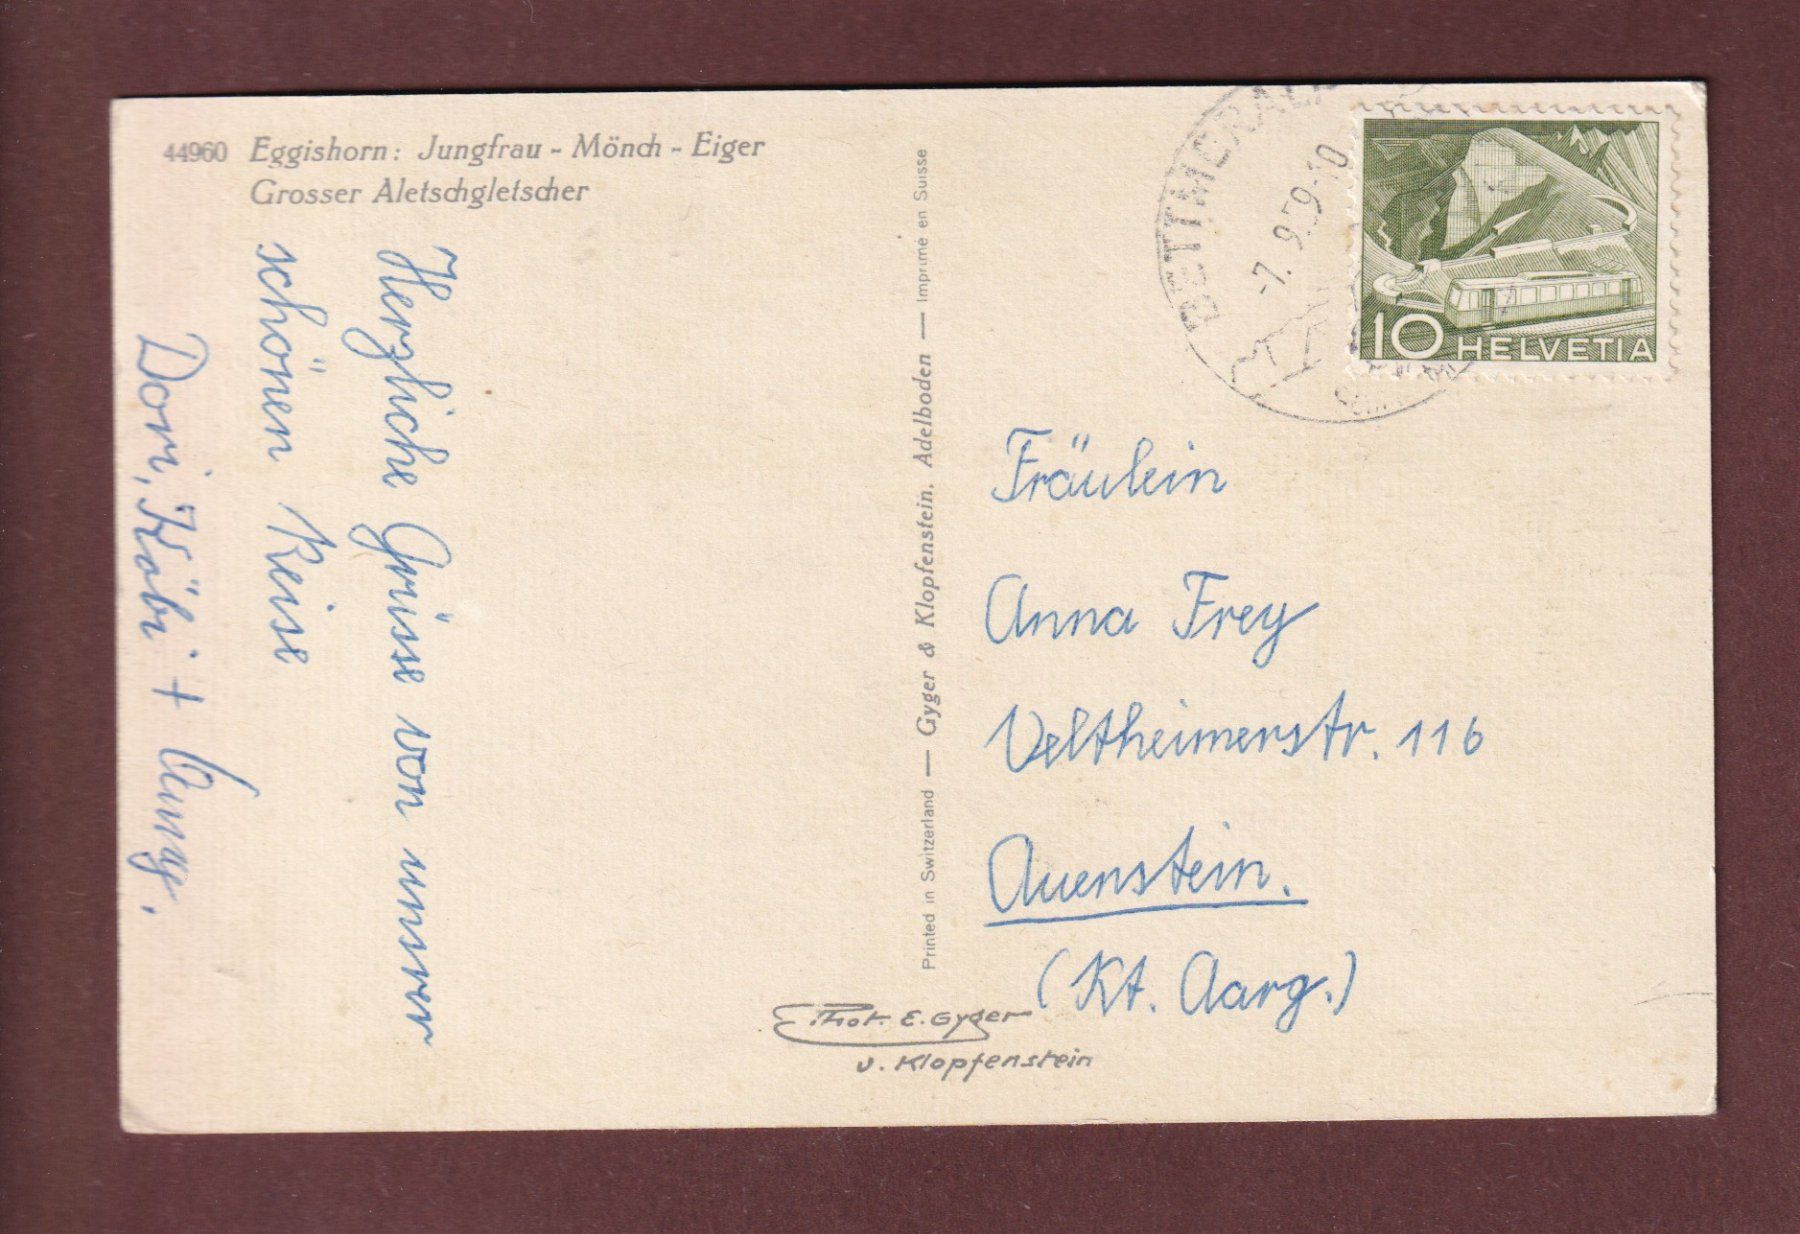 44960 Eggishorn: Jungfrau - Mönch - Eiger
Grosser Aletschgletscher
Herzliche Grüsse von unserer
schönen Reise
Dori, Köbi +
Printed in Switzerland — Gyger & Klopfenstein, Adelboden — Imprimé en Suisse
BETTMERALP
-7. 9.59-10
10 HELVETIA
Fräulein
Anna Frey
Veltheimerstr. 116
Auenstein.
(Kt. Aarg.)
Phot. E. Gyger
u. Klopfenstein